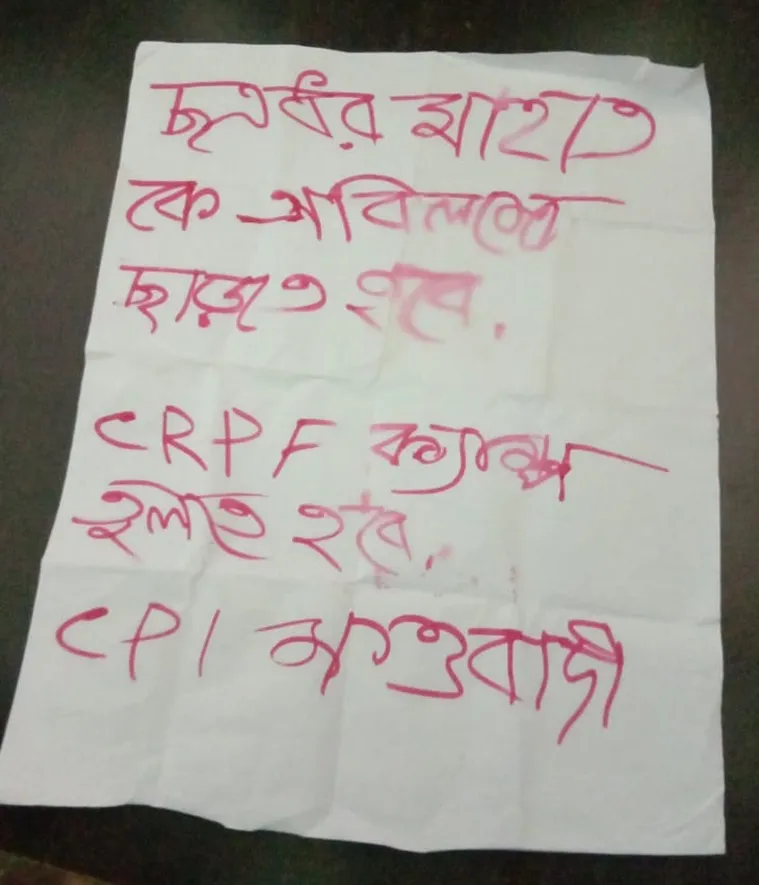 ছত্রধর মাহাত
কে অবিলম্বে
ছাড়তে হবে.
CRPF ক্যাম্প
তুলতে হবে.
CPI মাওবাদী